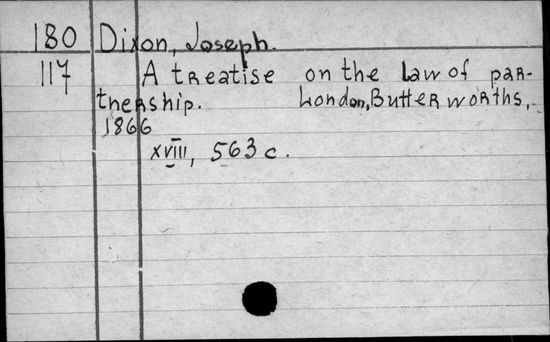 180 Dixon, Joseph.
117 A treatise on the law of par-
tnership. London, Butterworths,
1866
XVIII, 563 c.